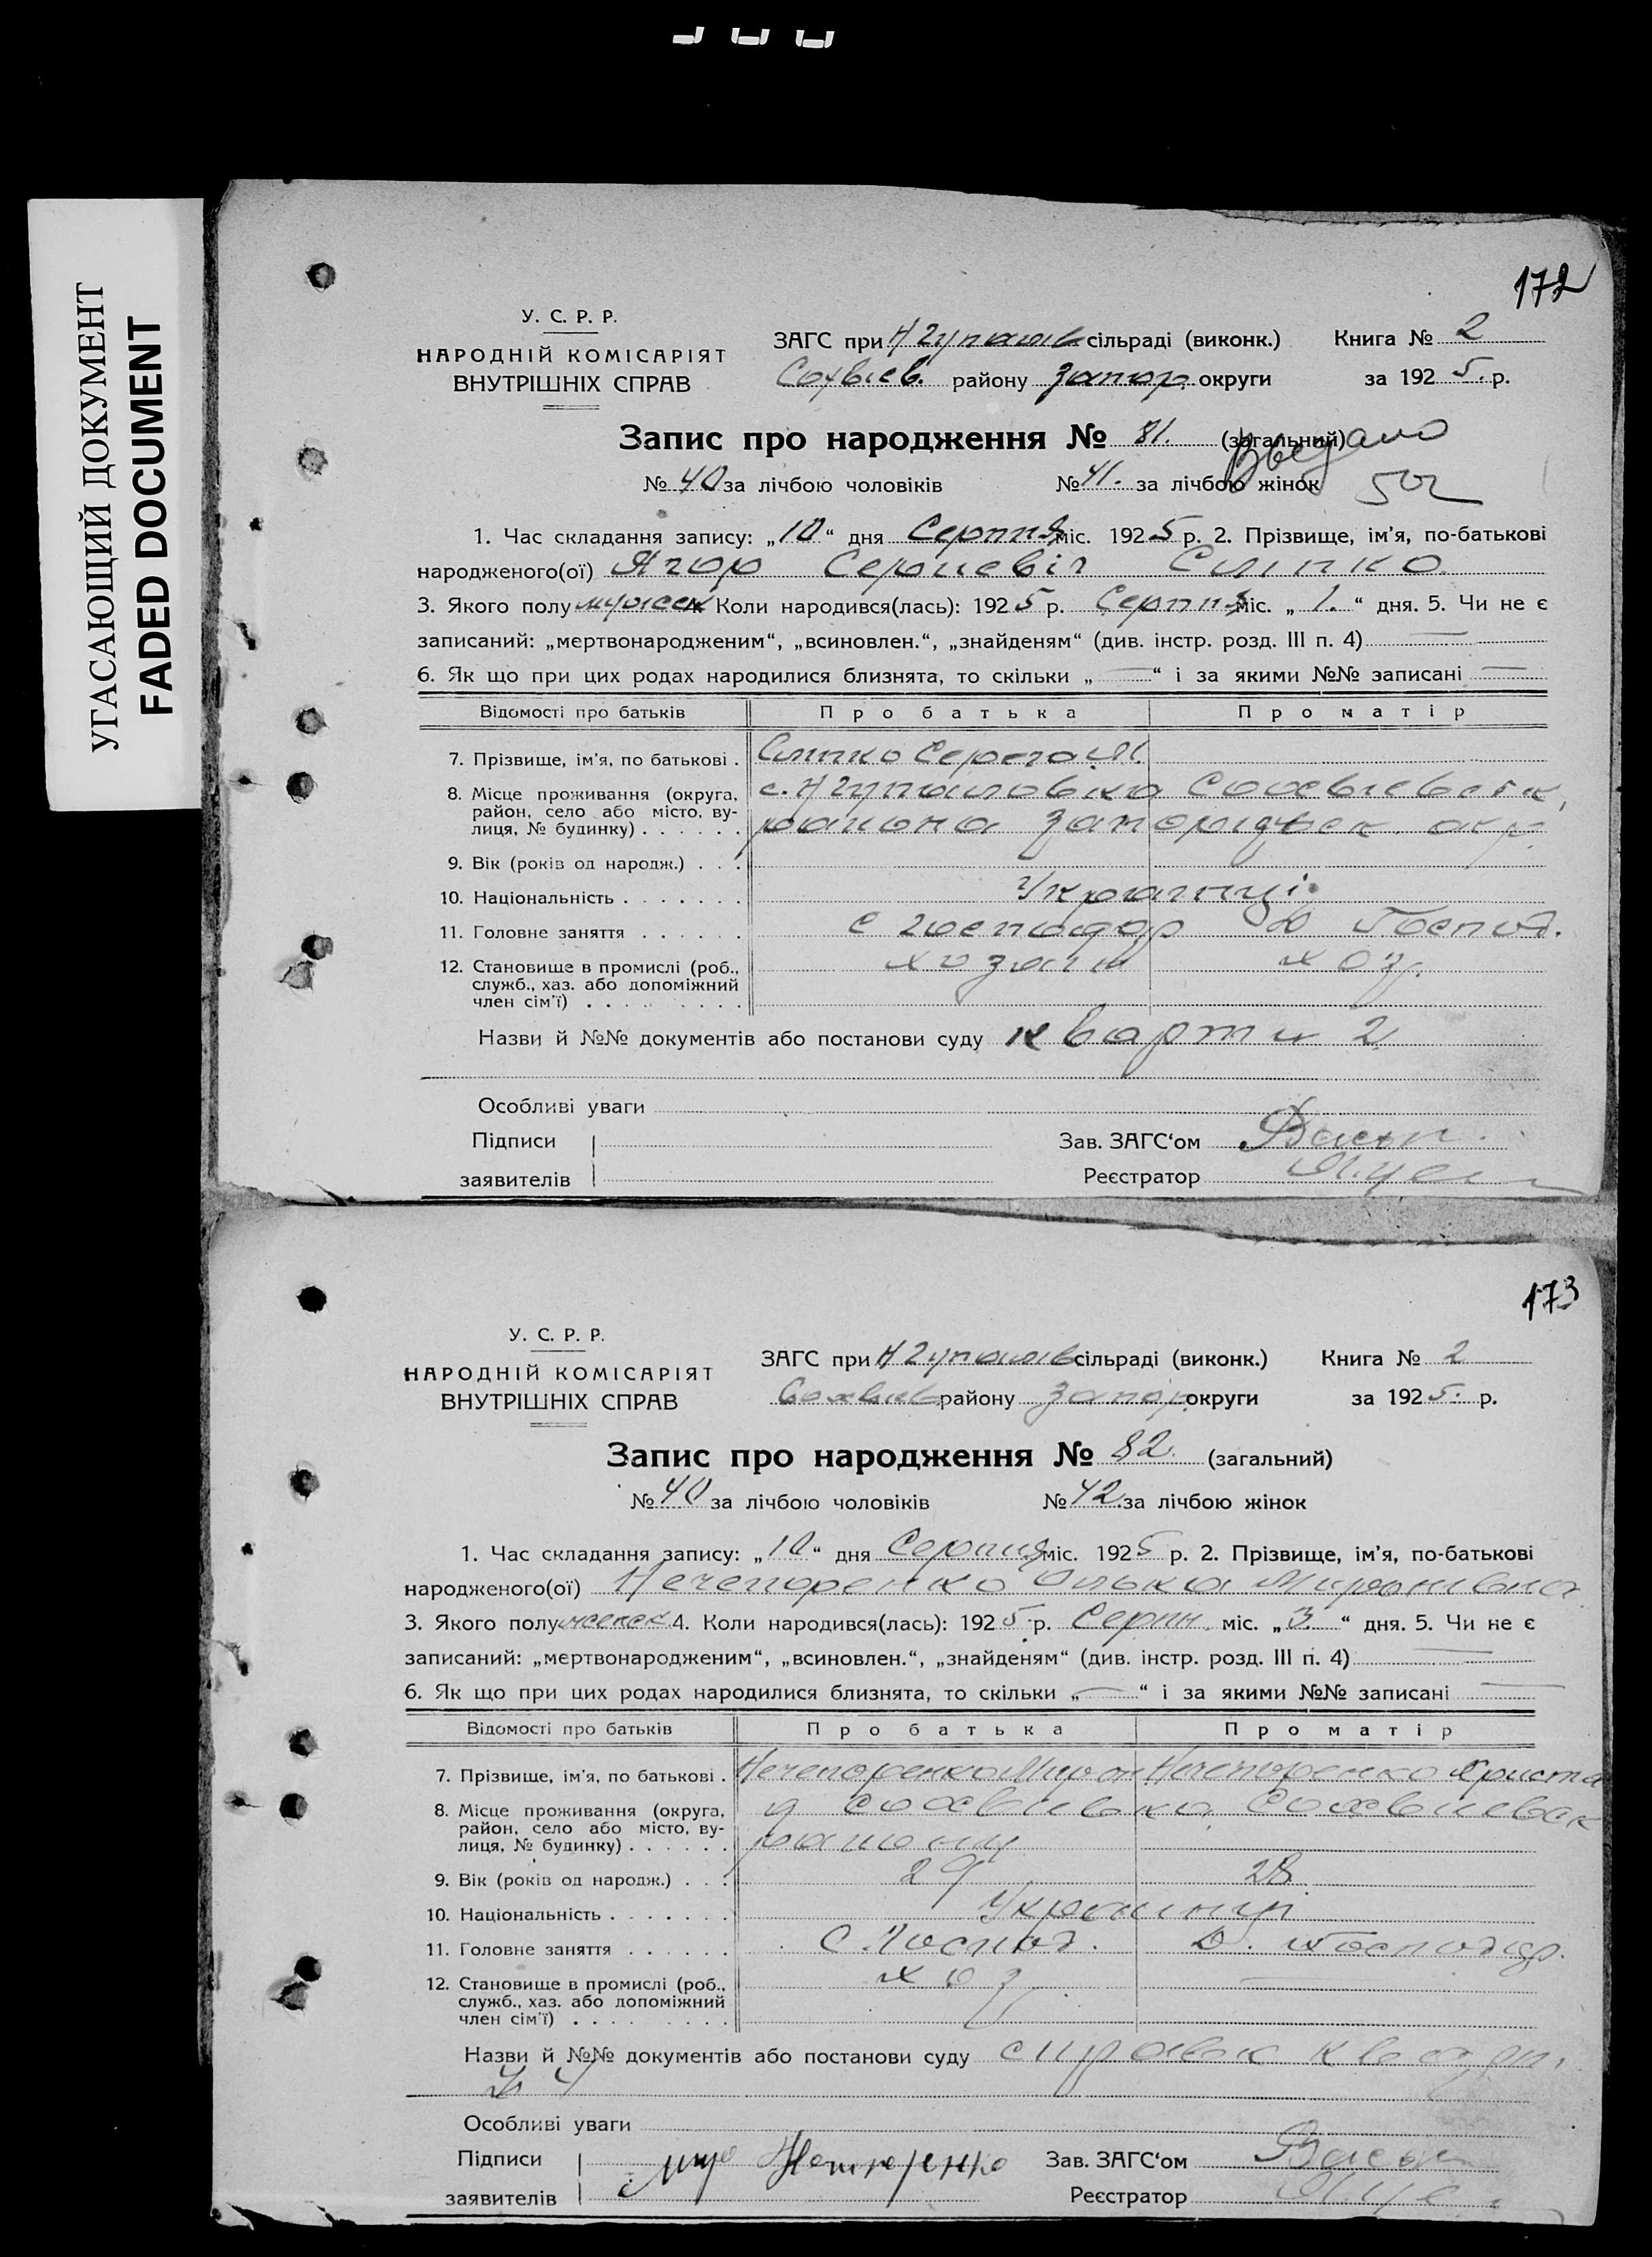 УГАСАЮЩИЙ ДОКУМЕНТ
FADED DOCUMENT
172
У. С. Р. Р.
НАРОДНІЙ КОМІСАРІЯТ
ВНУТРІШНІХ СПРАВ
ЗАГС при сільраді (виконк.) Книга № 2
району Запор. округи за 1925. р.
Запис про народження № 81. (загальний)
Выдано
№ 40 за лічбою чоловіків № 41. за лічбою жінок
1. Час складання запису: „10“ дня Серпня міс. 1925 р. 2. Прізвище, ім'я, по-батькові
народженого(ої) Ягор Сергієвіч Сліпко
3. Якого полу мужеск 4. Коли народився(лась): 1925 р. Серпня міс. „1.“ дня. 5. Чи не є
записаний: „мертвонародженим“, „всиновлен.“, „знайденям“ (див. інстр. розд. III п. 4)
6. Як що при цих родах народилися близнята, то скільки „—“ і за якими №№ записані —
Відомості про батьків Про батька Про матір
7. Прізвище, ім'я, по батькові . Сліпко М.
8. Місце проживання (округа,
район, село або місто, ву-
лиця, № будинку) . . . . . .
района Запоридзьск. окр.
9. Вік (років од народж.) . . .
10. Національність . . . . . . . Украінці
11. Головне заняття . . . . . . С господар Д Господ.
12. Становище в промислі (роб.,
служб., хаз. або допоміжний
член сім'ї) . . . . . . . . .
хозаін хоз.
Назви й №№ документів або постанови суду 2
Особливі уваги
Підписи Зав. ЗАГС'ом
заявителів Реєстратор
173
У. С. Р. Р.
НАРОДНІЙ КОМІСАРІЯТ
ВНУТРІШНІХ СПРАВ
ЗАГС при сільраді (виконк.) Книга № 2
району Запор. округи за 1925. р.
Запис про народження № 82. (загальний)
№ 40 за лічбою чоловіків № 42. за лічбою жінок
1. Час складання запису: „10“ дня Серпня міс. 1925 р. 2. Прізвище, ім'я, по-батькові
народженого(ої) Нечепоренко Олька Миронівна
3. Якого полу женск 4. Коли народився(лась): 1925 р. Серпн. міс. „3.“ дня. 5. Чи не є
записаний: „мертвонародженим“, „всиновлен.“, „знайденям“ (див. інстр. розд. III п. 4)
6. Як що при цих родах народилися близнята, то скільки „—“ і за якими №№ записані —
Відомості про батьків Про батька Про матір
7. Прізвище, ім'я, по батькові . Нечепоренко Мирон Нечепоренко Христя
8. Місце проживання (округа,
район, село або місто, ву-
лиця, № будинку) . . . . . .
району
9. Вік (років од народж.) . . . 29 28
10. Національність . . . . . . . Украинці
11. Головне заняття . . . . . . С. Господ. Д. Господар.
12. Становище в промислі (роб.,
служб., хаз. або допоміжний
член сім'ї) . . . . . . . . .
хоз. —
Назви й №№ документів або постанови суду справка
№ 4
Особливі уваги
Підписи Зав. ЗАГС'ом
заявителів Реєстратор